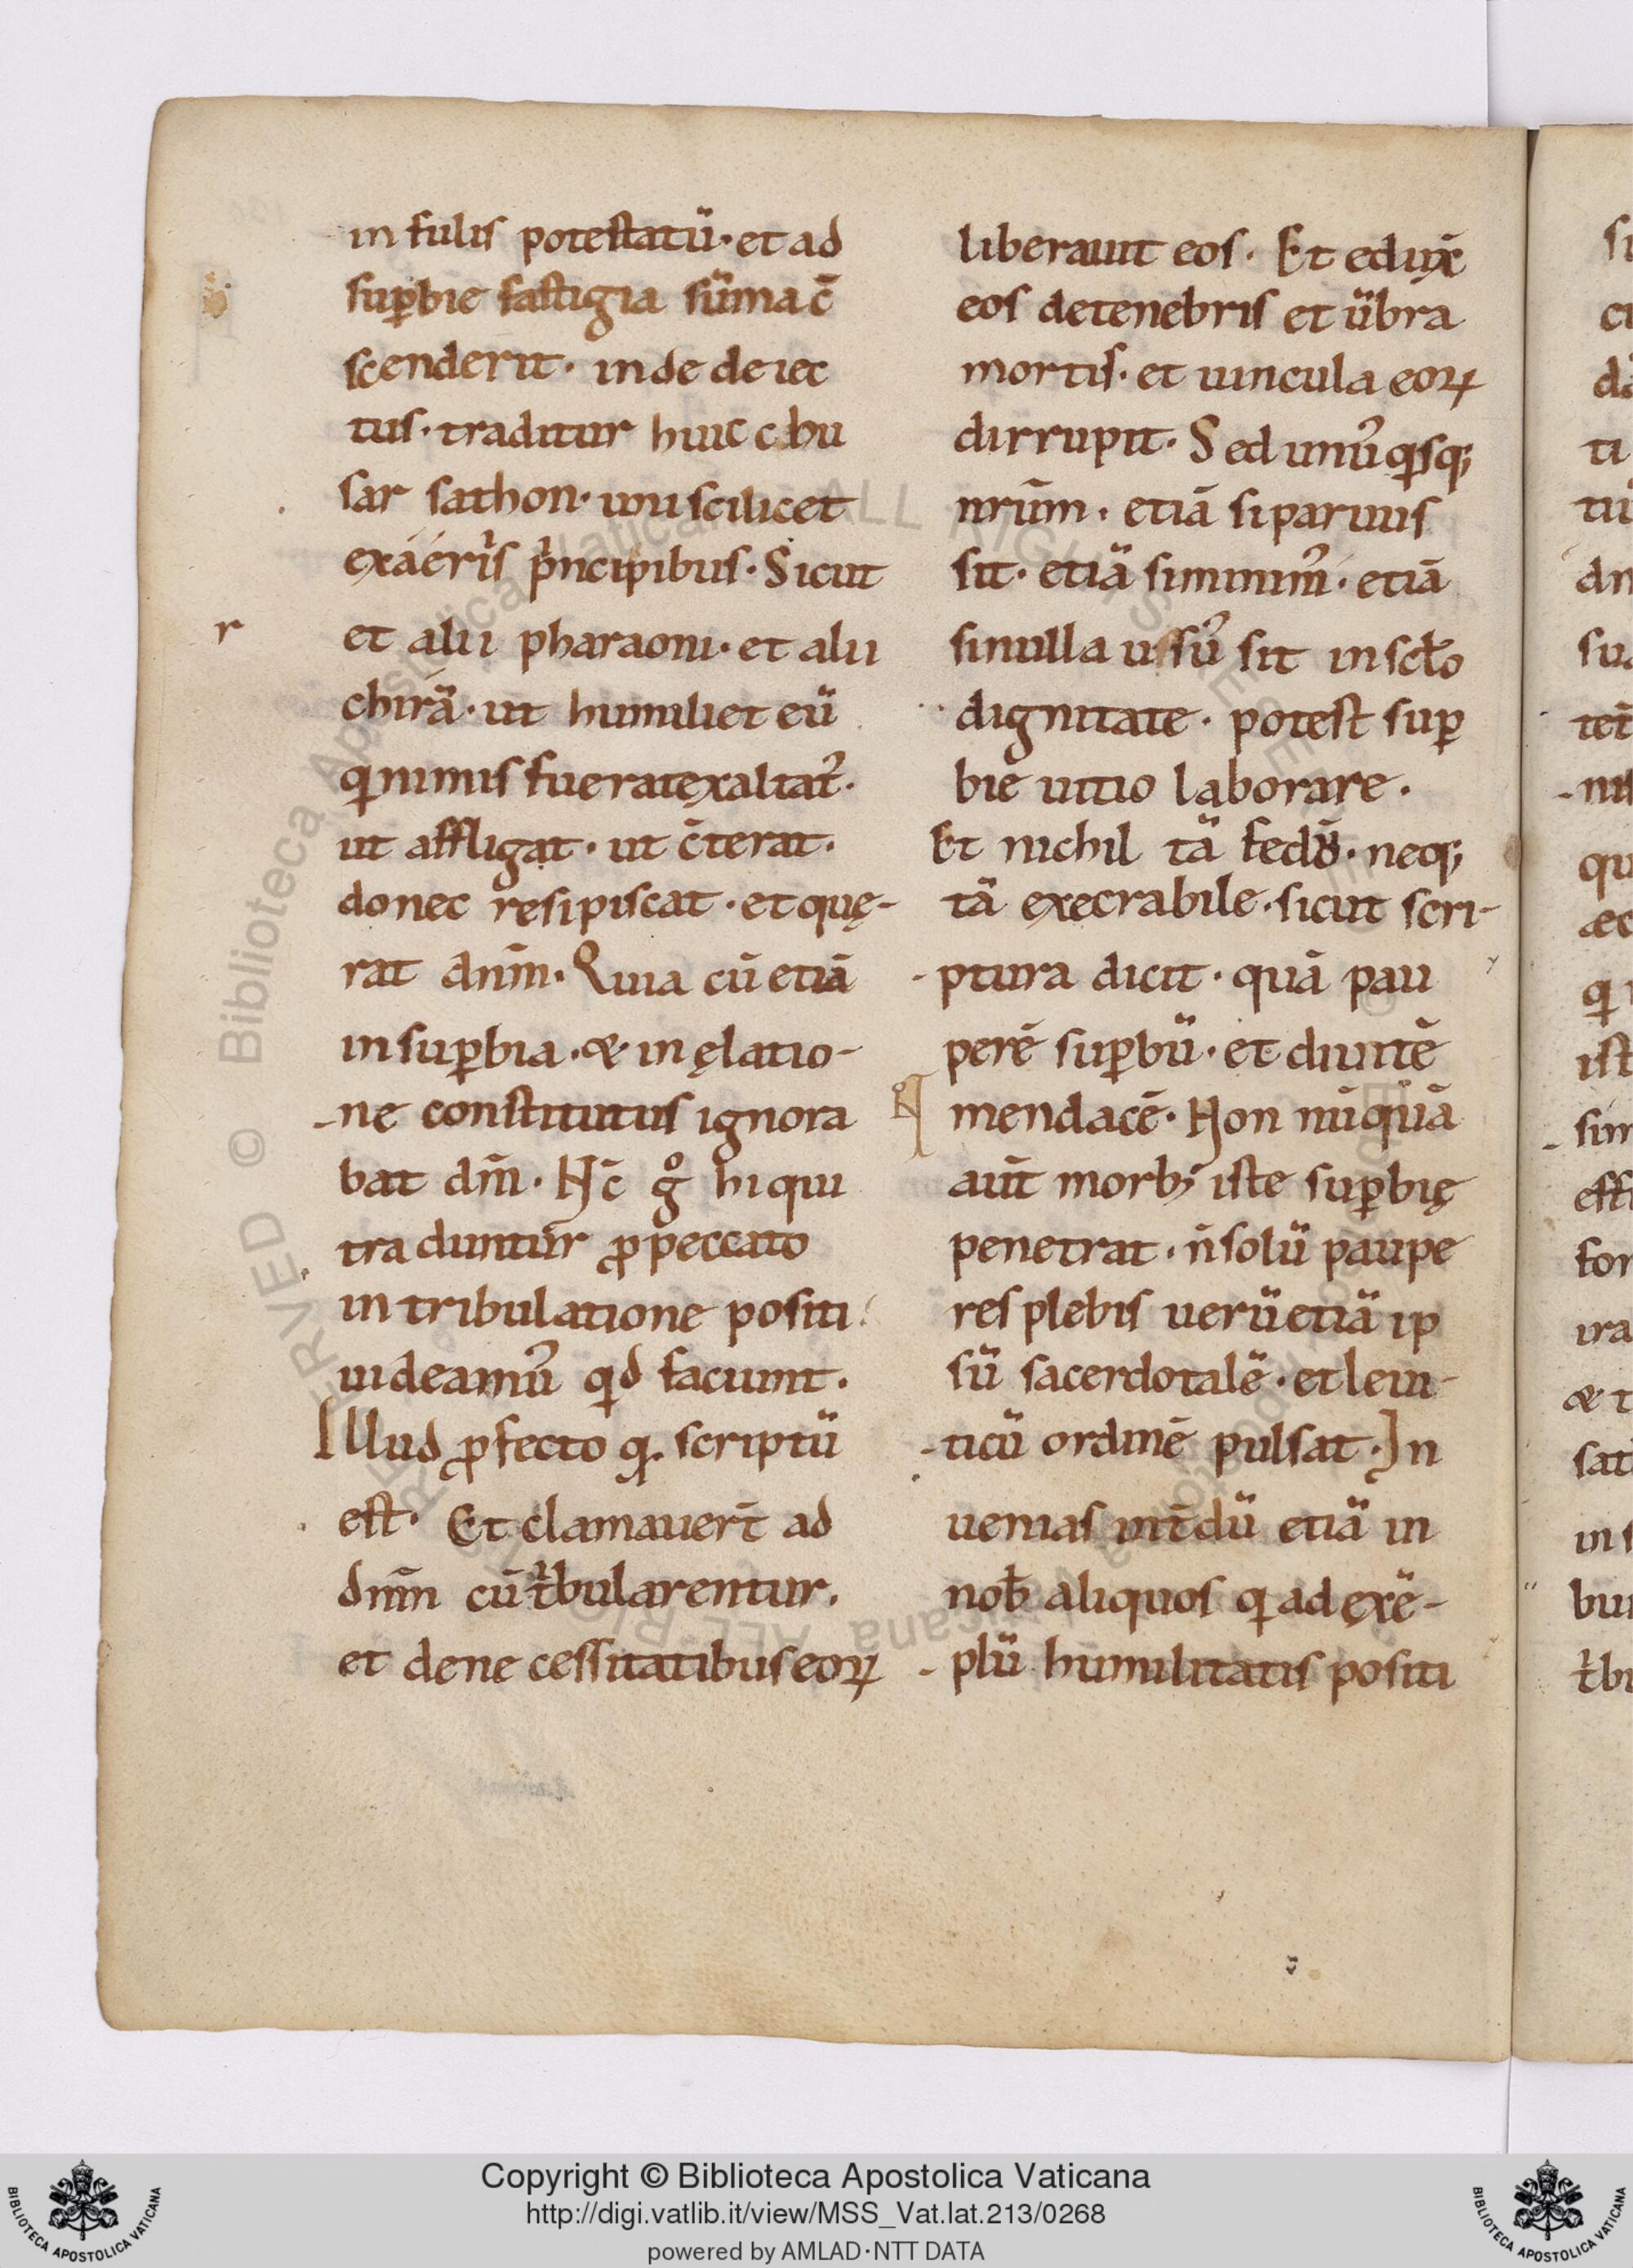 in fulis potestatū· et ad
suꝑbie fastigia sūma c̄
scenderit· inde deiec
tus· traditur huic chu
sar sathon· uni scilicet
ex aeriis p̍ncipibus· Sicut
et alii pharaoni· et alii
chirā· ut humiliet eū
qui nimis fuerat exaltatꝰ·
ut affligat· ut c̄terat·
donec resipiscat· et quę-
rat dn̄m· Quia cū etiā
in suꝑbia· & in ęlatio-
-ne constitutus ignora
bat dm̄· Nc̄ gͦ hi qui
traduntur ꝓ peccato
in tribulatione positi
uideamꝰ qd faciunt·
Illud ꝓfecto q· scriptū
est· Et clamauer̄t ad
dn̄m cū t̍bularentur·
et de necessitatibus eoꝝ
r
liberauit eos· Et edux̄
eos de tenebris et ūbra
mortis· et uincula eoꝝ
dirrupit· Sed unꝰ qisq;
nr̄m· etiā si paruus
sit· etiā si minimꝰ· etiā
si nulla ussꝰ sit in scl̄o
dignitate· potest suꝑ
bie uitio laborare·
Et nichil tā fedū· neq;
tā execrabile· sicut scri-
-ptura dicit· quā pau
perē suꝑbū· et diuitē
mendacē· Non nūquā
aūt morb; iste suꝑbię
penetrat· n̄ solū paupe
res plebis uerū etiā ip
sū sacerdotalē· et leui-
-ticū ordinē pulsat· In
uenias int̄dū etiā in
nob̄ aliquos q ad exē-
-plū humilitatis positi
Copyright © Biblioteca Apostolica Vaticana
http://digi.vatlib.it/view/MSS_Vat.lat.213/0268
powered by AMLAD·NTT DATA